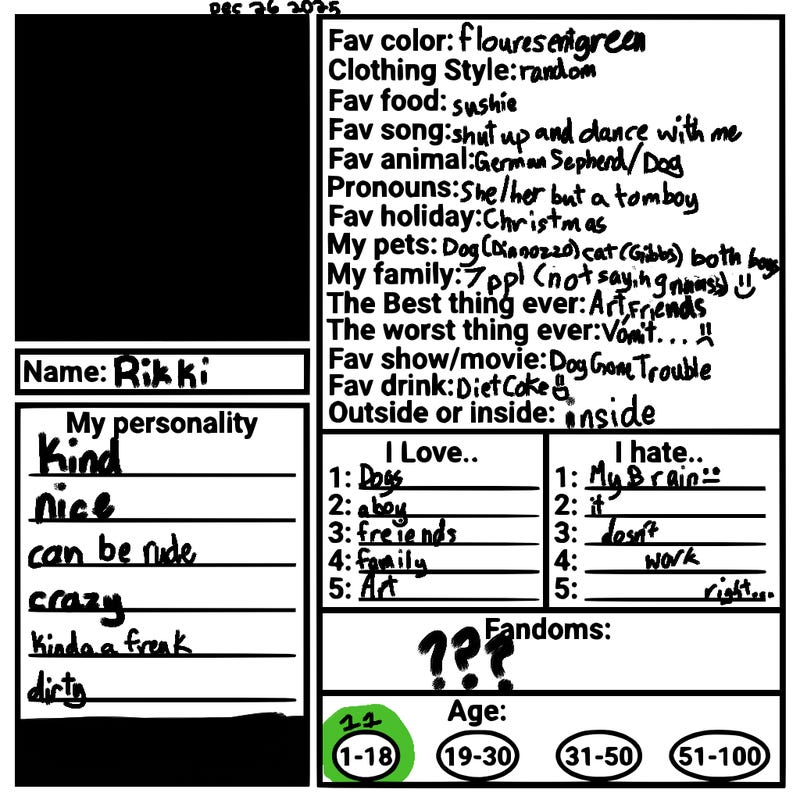 Dec 26 2025
Name: Rikki
My personality
kind
nice
can be rude
crazy
kinda a freak
dirty
Fav color: flouresentgreen
Clothing Style: random
Fav food: sushie
Fav song: shut up and dance with me
Fav animal: German Sepherd/Dog
Pronouns: She/her but a tomboy
Fav holiday: Christmas
My pets: Dog (Dinnozzo) cat (Gibbs) both boys
My family: 7 ppl (not saying) :)
The Best thing ever: Art, Friends
The worst thing ever: Vomit... :(
Fav show/movie: Dog Gone Trouble
Fav drink: Diet Coke
Outside or inside: inside
I Love..
1: Dogs
2: a boy
3: freiends
4: family
5: Art
I hate..
1: My Brain
2: it
3: dosn't
4: work
5: right...
Fandoms:
???
Age:
11
1-18 19-30 31-50 51-100